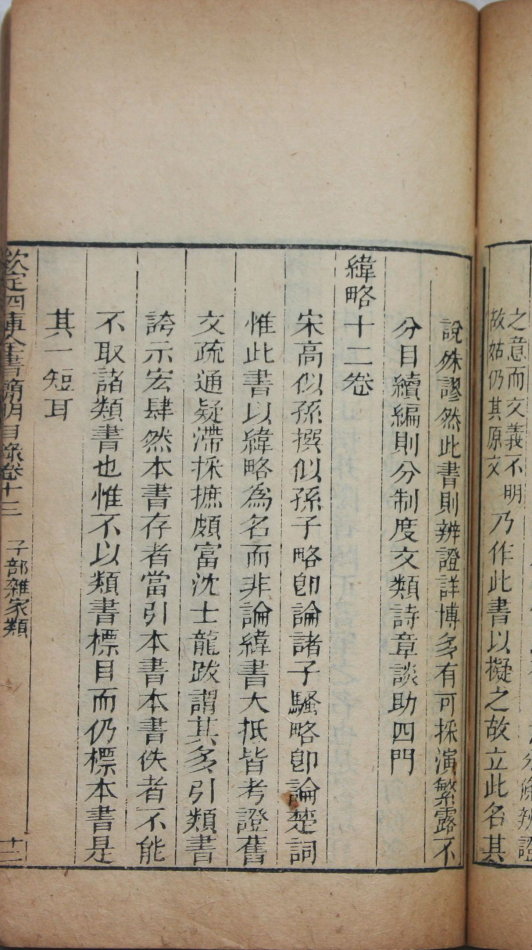 之意而文義不明
故姑仍其原文
乃作此書以擬之故立此名其
說殊謬然此書則辨證詳博多有可採演繁露不
分目續編則分制度文類詩章談助四門
緯略十二卷
宋高似孫撰似孫子略卽論諸子騷略卽論楚詞
惟此書以緯略為名而非論緯書大抵皆考證舊
文疏通疑滯採摭頗富沈士龍跋謂其多引類書
誇示宏肆然本書存者當引本書本書佚者不能
不取諸類書也惟不以類書標目而仍標本書是
其一短耳
欽定四庫全書簡明目錄卷十三 子部雜家類 十二